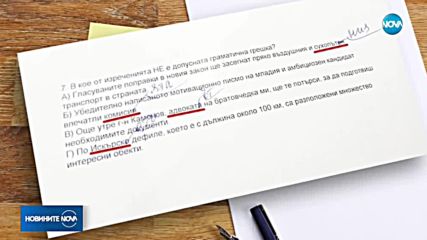 NOVA
7. В кое от изреченията НЕ е допусната граматична грешка?
А) Гласуваните поправки в новия закон ще засегнат пряко въздушния и сухопътния
транспорт в страната.
Б) Убедително написаното мотивационно писмо на младия и амбициозен кандидат
впечатли комисия
В) Още утре г-н Камонов, адвоката на братовчедка ми, ще те потърси, за да подготвиш
необходимите документи
Г) По Искърско дефиле, което е с дължина около 100 км, са разположени множество
интересни обекти.
НОВИНИТЕ NOVA